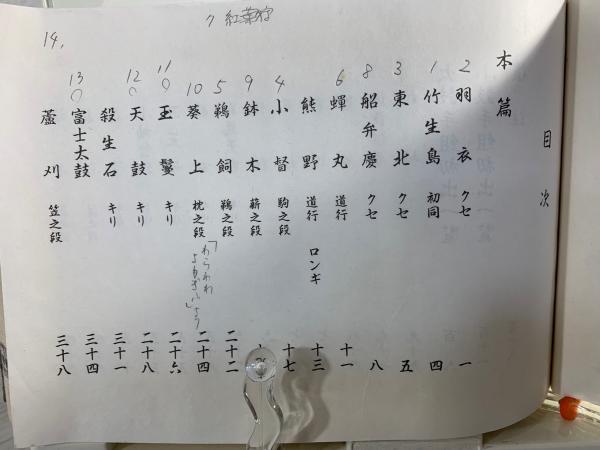 目次
本篇
2 羽衣 クセ 一
1 竹生島 初同 四
3 東北 クセ 五
8 船弁慶 クセ 八
6 蟬丸 道行 十一
熊野 道行 ロンギ 十三
4 小督 駒之段 十七
9 鉢木 薪之段
5 鵜飼 鵜之段 二十二
10 葵上 枕之段 二十四
11 玉鬘 キリ 二十六
12 天鼓 キリ 二十八
殺生石 キリ 三十一
13 富士太鼓 三十四
14. 蘆刈 笠之段 三十八
7 紅葉狩